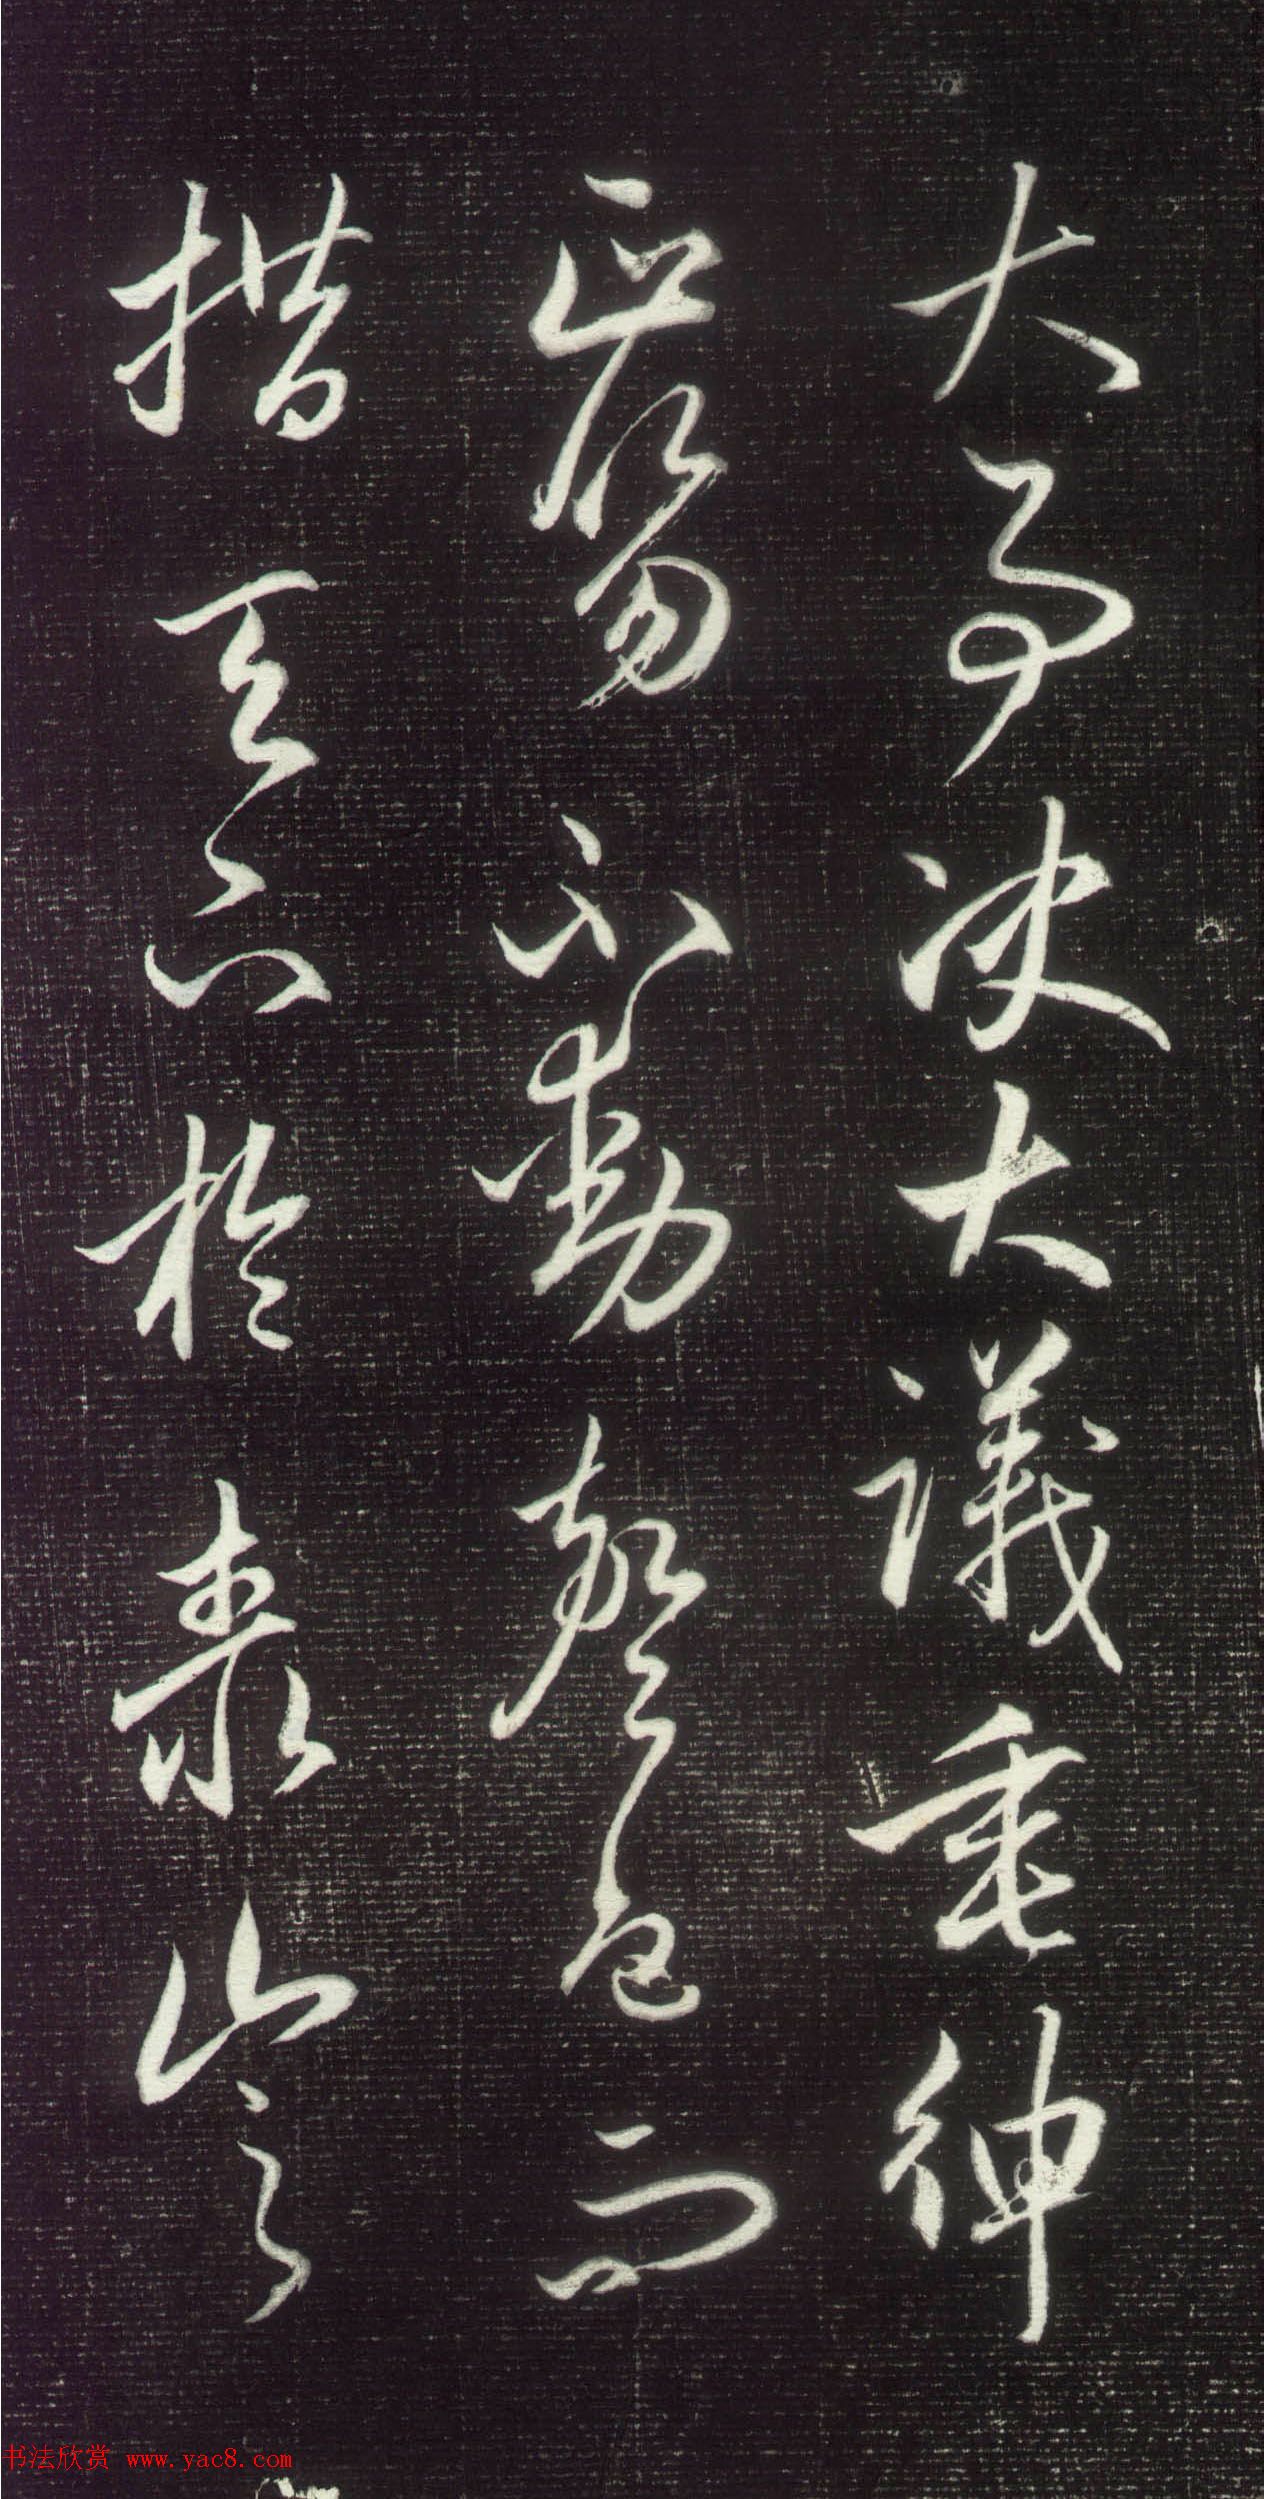 大事决大議垂紳
正笏不動聲色而
措天下於泰山之
书法欣赏 www.yac8.com